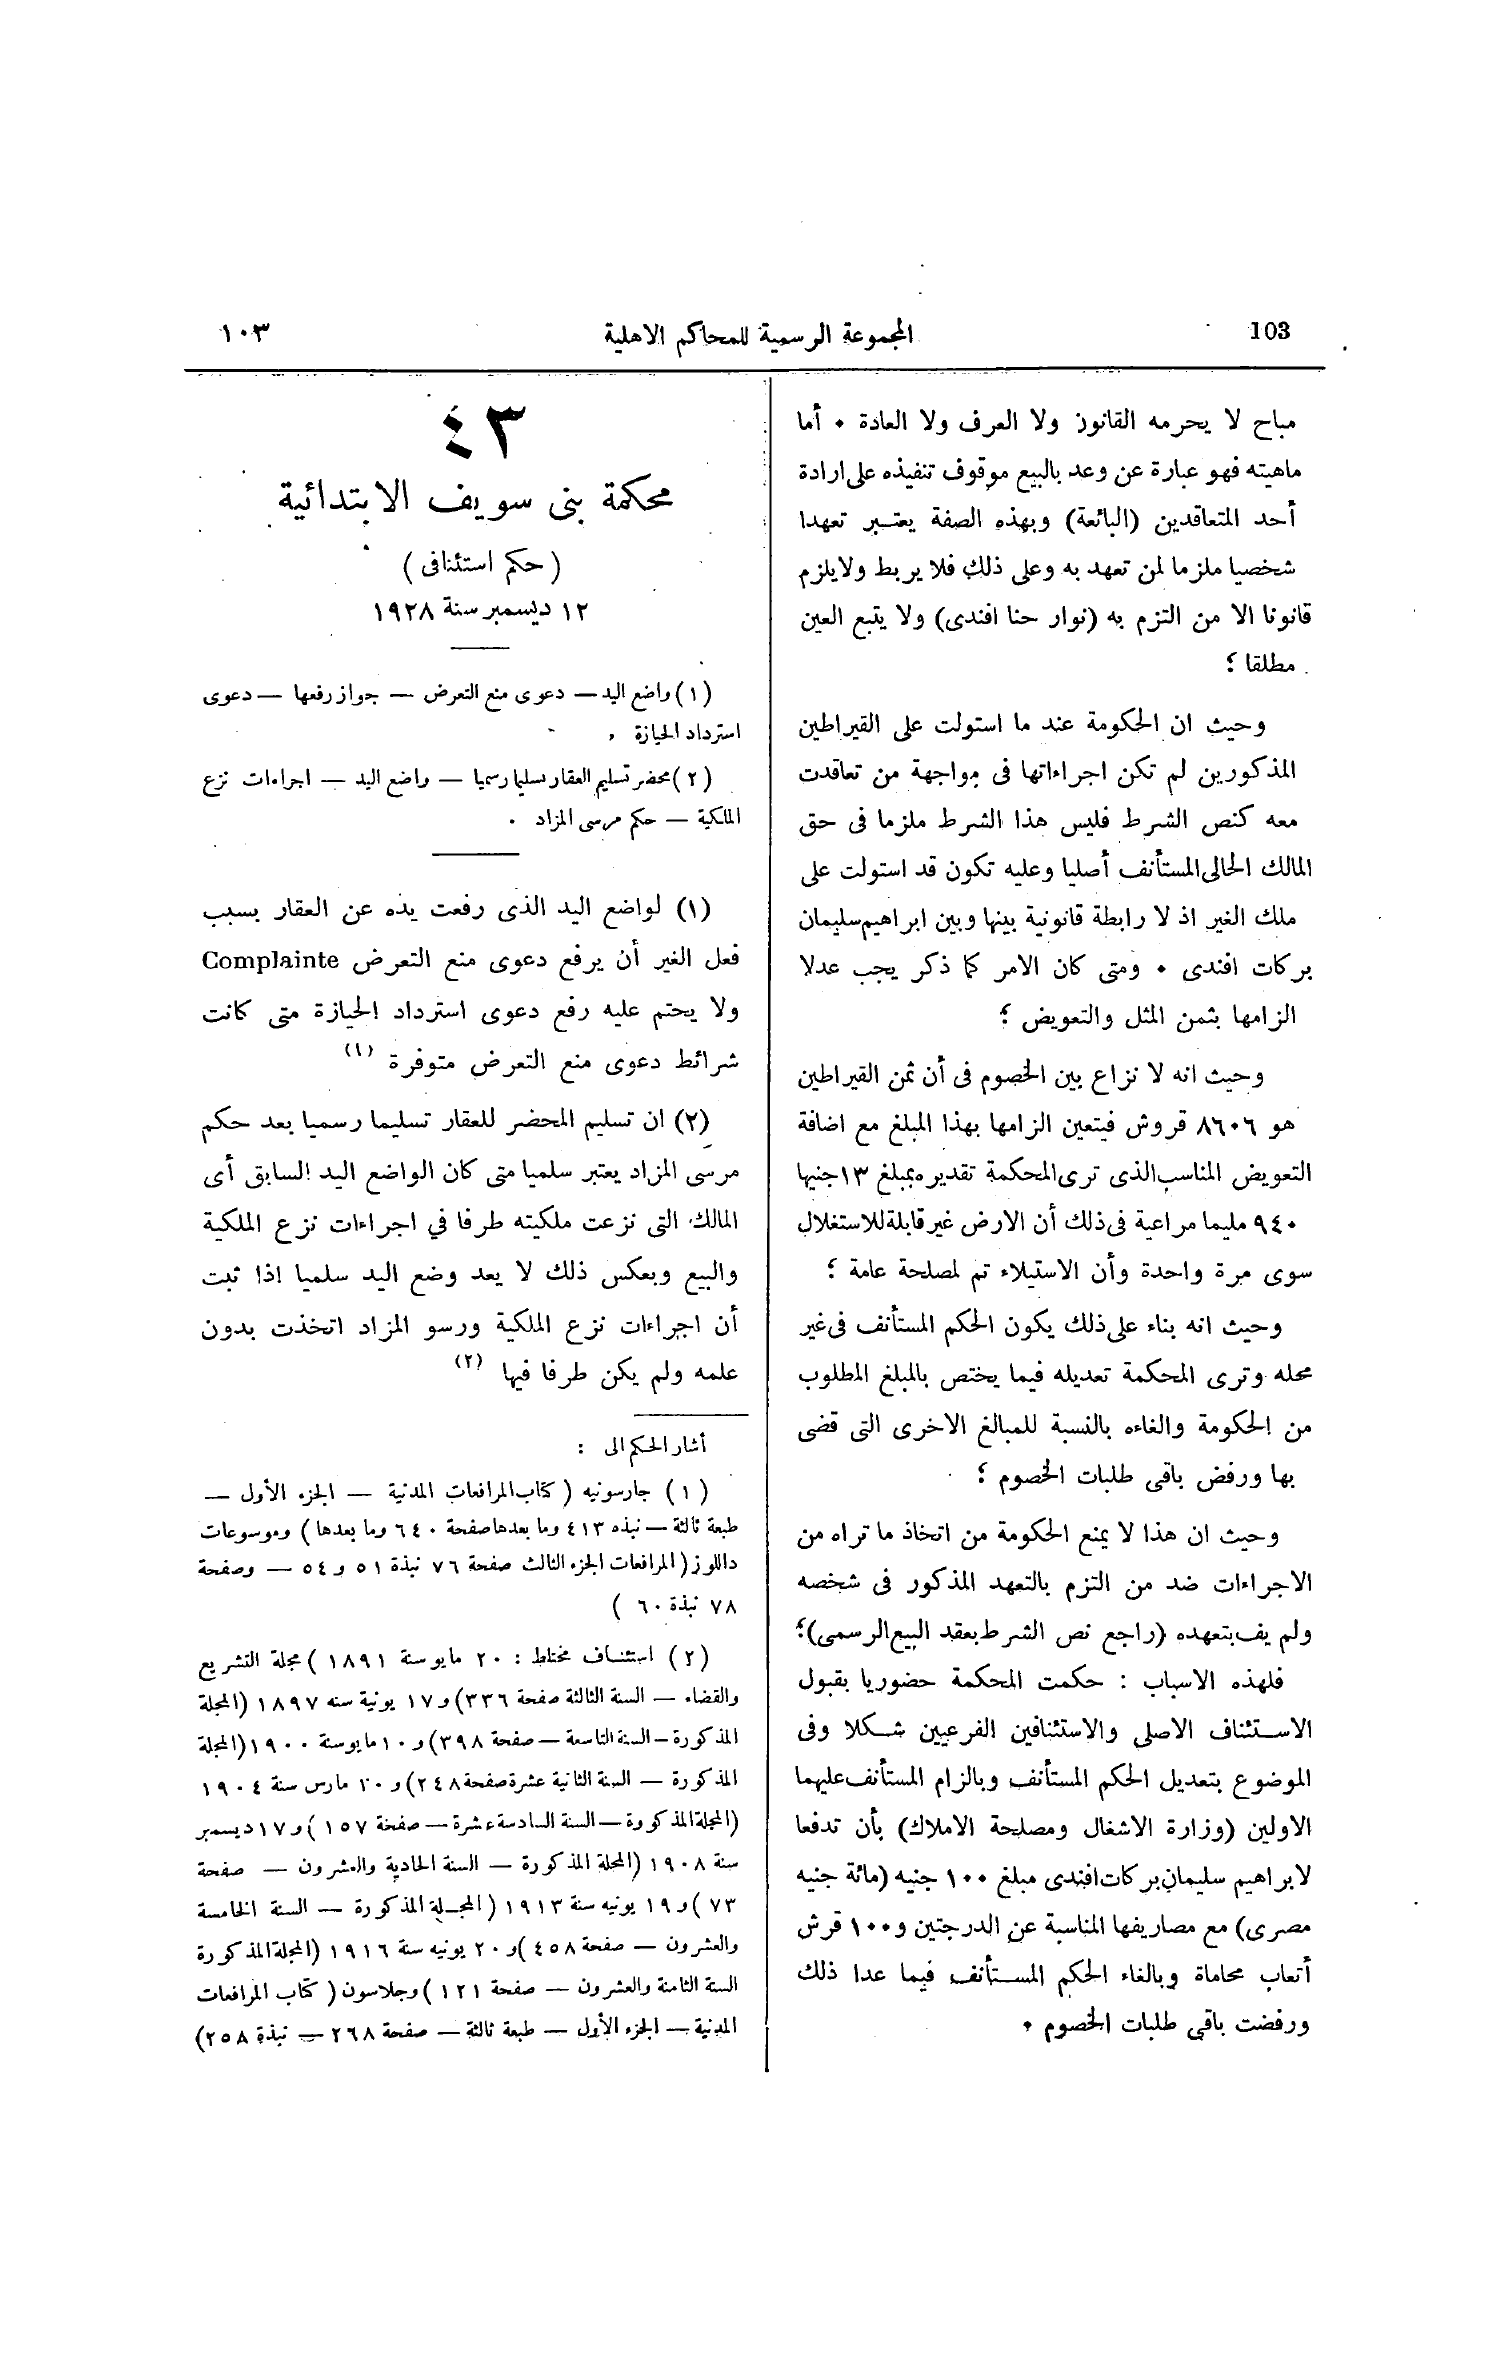 103
المجموعة الرسمية للمحاكم الاهلية
١٠٣
مباح لا يحرمه القانون ولا العرف ولا العادة . أما
ماهيته فهو عبارة عن وعد بالبيع موقوف تنفيذه على ارادة
أحد المتعاقدين (البائعة) وبهذه الصفة يعتبر تعهدا
شخصيا ملزما لمن تعهد به وعلى ذلك فلا يربط ولا يلزم
قانونا الا من التزم به (نوار حنا افندى) ولا يتبع العين
مطلقا ؛
وحيث ان الحكومة عند ما استولت على القيراطين
المذكورين لم تكن اجراءاتها فى مواجهة من تعاقدت
معه كنص الشرط فليس هذا الشرط ملزما فى حق
المالك الحالى المستأنف أصليا وعليه تكون قد استولت على
ملك الغير اذ لا رابطة قانونية بينها وبين ابراهيم سليمان
بركات افندى . ومتى كان الامر كما ذكر يجب عدلا
الزامها بثمن المثل والتعويض ؛
وحيث انه لا نزاع بين الخصوم فى أن ثمن القيراطين
هو ٨٦٠٦ قروش فيتعين الزامها بهذا المبلغ مع اضافة
التعويض المناسب الذى ترى المحكمة تقديره بمبلغ ١٣ جنيها
٩٤٠ مليما مراعية فى ذلك أن الارض غير قابلة للاستغلال
سوى مرة واحدة وأن الاستيلاء تم لمصلحة عامة ؛
وحيث انه بناء على ذلك يكون الحكم المستأنف فى غير
محله وترى المحكمة تعديله فيما يختص بالمبلغ المطلوب
من الحكومة والغاءه بالنسبة للمبالغ الاخرى التى قضى
بها ورفض باقى طلبات الخصوم ؛
وحيث ان هذا لا يمنع الحكومة من اتخاذ ما تراه من
الاجراءات ضد من التزم بالتعهد المذكور فى شخصه
ولم يف بتعهده (راجع نص الشرط بعقد البيع الرسمى)؛
فلهذه الاسباب : حكمت المحكمة حضوريا بقبول
الاستئناف الاصلى والاستئنافين الفرعيين شكلا وفى
الموضوع بتعديل الحكم المستأنف وبالزام المستأنف عليهما
الاولين (وزارة الاشغال ومصلحة الاملاك) بأن تدفعا
لابراهيم سليمان بركات افندى مبلغ ١٠٠ جنيه (مائة جنيه
مصرى) مع مصاريفها المناسبة عن الدرجتين و١٠٠ قرش
أتعاب محاماة وبالغاء الحكم المستأنف فيما عدا ذلك
ورفضت باقى طلبات الخصوم .
٤٣
محكمة بنى سويف الابتدائية
( حكم استئنافى )
١٢ ديسمبر سنة ١٩٢٨
(١) واضع اليد — دعوى منع التعرض — جواز رفعها — دعوى
استرداد الحيازة .
(٢) محضر تسليم العقار تسليما رسميا — واضع اليد — اجراءات نزع
الملكية — حكم مرسى المزاد .
(١) لواضع اليد الذى رفعت يده عن العقار بسبب
فعل الغير أن يرفع دعوى منع التعرض Complainte
ولا يحتم عليه رفع دعوى استرداد الحيازة متى كانت
شرائط دعوى منع التعرض متوفرة (١)
(٢) ان تسليم المحضر للعقار تسليما رسميا بعد حكم
مرسى المزاد يعتبر سلميا متى كان الواضع اليد السابق أى
المالك التى نزعت ملكيته طرفا في اجراءات نزع الملكية
والبيع وبعكس ذلك لا يعد وضع اليد سلميا اذا ثبت
أن اجراءات نزع الملكية ورسو المزاد اتخذت بدون
علمه ولم يكن طرفا فيها (٢)
أشار الحكم الى :
(١) جارسونيه ( كتاب المرافعات المدنية — الجزء الأول —
طبعة ثالثة — نبذه ٤١٣ وما بعدها صفحة ٦٤٠ وما بعدها ) وموسوعات
داللوز ( المرافعات الجزء الثالث صفحة ٧٦ نبذة ٥١ و ٥٤ — وصفحة
٧٨ نبذة ٦٠ )
(٢) استئناف مختلط : ٢٠ مايو سنة ١٨٩١ ) مجلة التشريع
والقضاء — السنة الثالثة صفحة ٣٣٦) و ١٧ يونية سنه ١٨٩٧ (المجلة
المذكورة — السنة التاسعة — صفحة ٣٩٨) و ١٠ مايو سنة ١٩٠٠ (المجلة
المذكورة — السنة الثانية عشرة صفحة ٢٤٨) و ٣٠ مارس سنة ١٩٠٤
(المجلة المذكورة — السنة السادسة عشرة — صفحة ١٥٧ ) و ١٧ ديسمبر
سنة ١٩٠٨ (المجلة المذكورة — السنة الحادية والعشرون — صفحة
٧٣ ) و ١٩ يونيه سنة ١٩١٣ ( المجلة المذكورة — السنة الخامسة
والعشرون — صفحة ٤٥٨ ) و ٢٠ يونيه سنة ١٩١٦ (المجلة المذكورة
السنة الثامنة والعشرون — صفحة ١٢١ ) وجلاسون ( كتاب المرافعات
المدنية — الجزء الأول — طبعة ثالثة — صفحة ٢٦٨ — نبذة ٢٥٨)